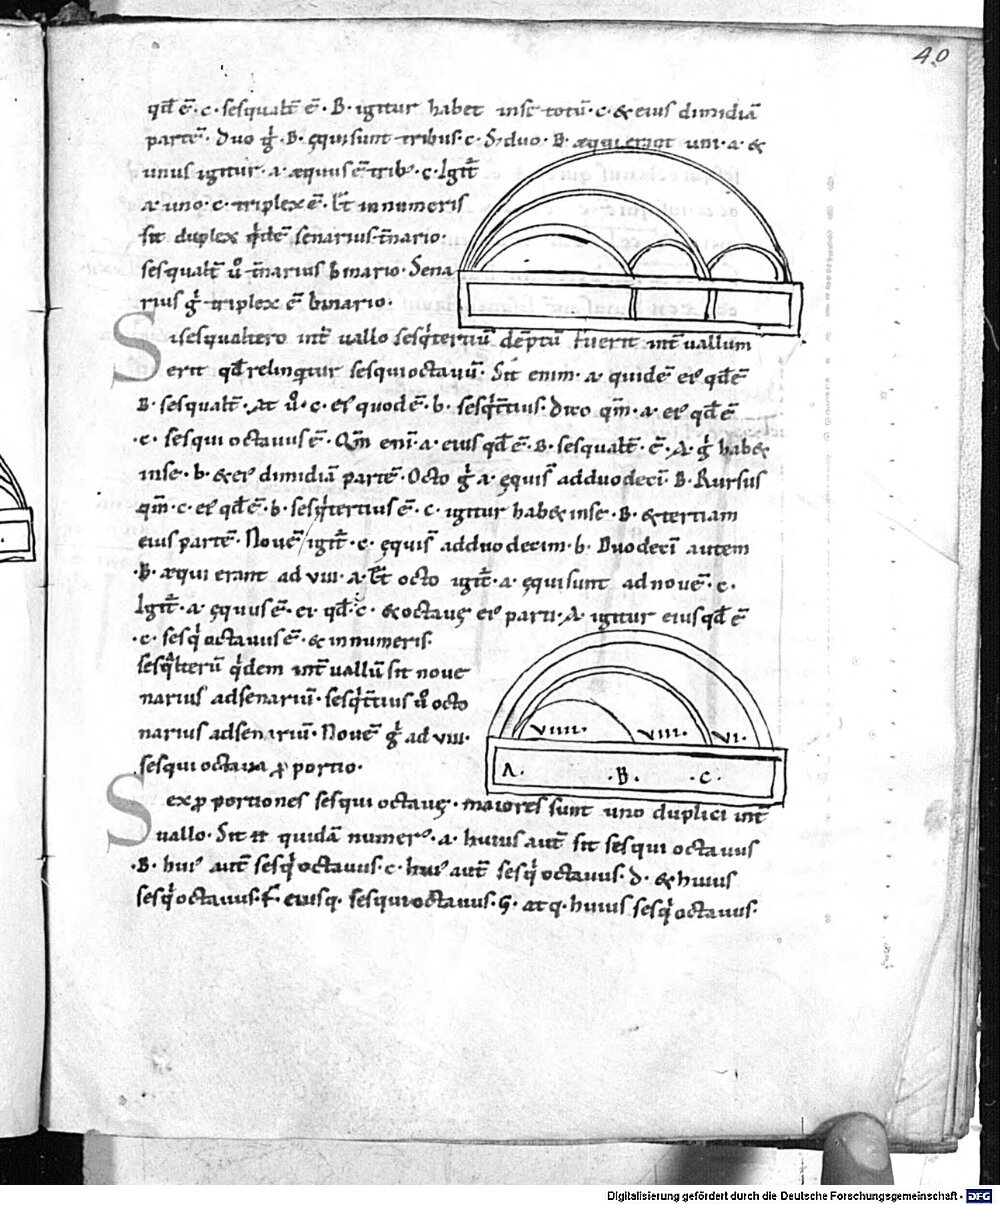 40
qđ ē · c · sesqualt̄ ē · B · igitur habet inse totū · c · & eius dimidiā
partē · Duo ḡ · B · ęquisunt tribus · c · S; duo · B · æqui erant uni · a · &
unus igitur · a · æquus ē trib; · c · Igit̄
a · uno · c · triplex ē · Et in numeris
sit duplex q̇dē senarius t̄nario ·
sesqualt̄ ů t̄narius binario · Sena
rius ḡ triplex ē binario ·
Si sesqualtero int̄ uallo sesq̇tertiū dēptū fuerit int̄ uallum
erit qđ relinquitur sesquioctauū · Sit enim · a · quidē ei; qđ ē
B · sesqualt̄ · At ů · c · ei; quod ē · b · sesq̇t̄tius · Dico qm̄ · a · ei; qđ ē
· c · sesqui octauus ē · Qm̄ eni · a · eius qđ ē · B · sesqualt̄ · ē · A · ḡ hab&
inse · b · & ei; dimidiā partē · Octo ḡ a · ęquis adduodeci · B · Rursus
qm̄ · c · ei; qđ ē · b · sesq̇tertius ē · c · igitur hab& inse · B · & tertiam
eius partē · Nouē igit̄ · c · ęquis adduodecim · b · Duodeci autem
· B · æqui erant ad VIII · a · Et octo igit̄ · a · ęquisunt ad nouē · c ·
Igit̄ · a · ęquus ē · ei; qđ · c · & octauę ei; parti · A · igitur eius qđ ē
· c · sesq̇ octauus ē · & in numeris ·
sesq̇lterū q̇dem int̄ uallū sit noue
narius adsenariū · sesq̇t̄tius ů octo
narius adsenariū · Nouē ḡ ad VIII ·
sesqui octaua ꝓ portio ·
VIIII · VIII · VI ·
A · · B · · C ·
Sex ꝓ portiones sesqui octauę · maiores sunt uno duplici int̄
uallo · Sit it quidā numer; · a · huius aut̄ sit sesqui octauus
· B · hui; aut̄ sesq̇ octauus · c · hui; aut̄ sesq̇ octauus · d · & huius
sesq̇ octauus · f · eiusq · sesquioctauus · G · atq · huius sesq̇ octauus ·
Digitalisierung gefördert durch die Deutsche Forschungsgemeinschaft - DFG